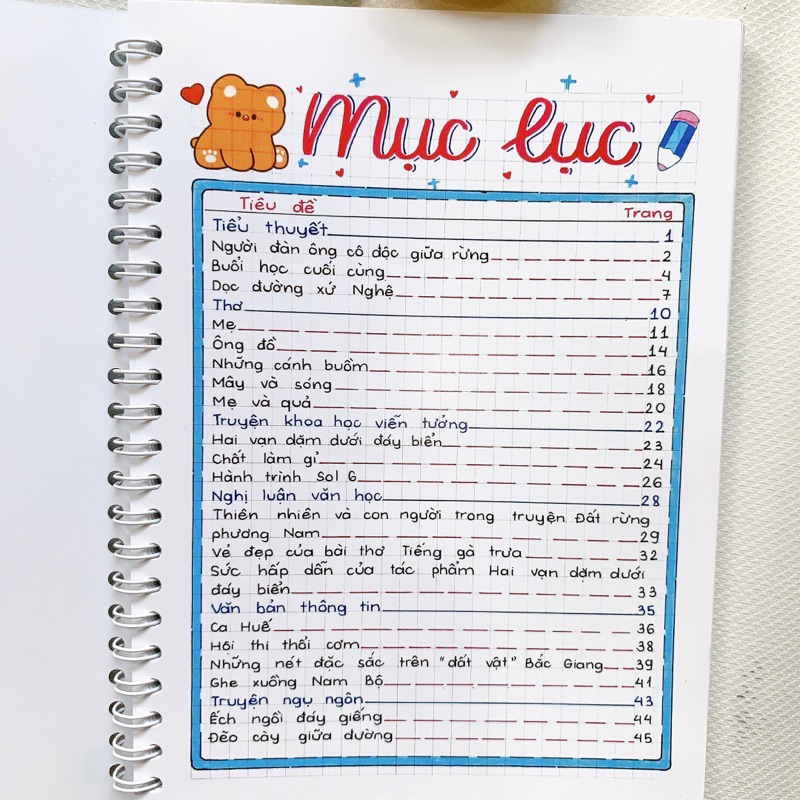 Mục lục
Tiêu đề Trang
Tiểu thuyết 1
Người đàn ông cô độc giữa rừng 2
Buổi học cuối cùng 4
Dọc đường xứ Nghệ 7
Thơ 10
Mẹ 11
Ông đồ 14
Những cánh buồm 16
Mây và sóng 18
Mẹ và quả 20
Truyện khoa học viễn tưởng 22
Hai vạn dặm dưới đáy biển 23
Chất làm gỉ 24
Hành trình Sol 6 26
Nghị luận văn học 28
Thiên nhiên và con người trong truyện Đất rừng
phương Nam 29
Vẻ đẹp của bài thơ Tiếng gà trưa 32
Sức hấp dẫn của tác phẩm Hai vạn dặm dưới
đáy biển 33
Văn bản thông tin 35
Ca Huế 36
Hội thi thổi cơm 38
Những nét đặc sắc trên "đất vật" Bắc Giang 39
Ghe xuồng Nam Bộ 41
Truyện ngụ ngôn 43
Ếch ngồi đáy giếng 44
Đẽo cày giữa đường 45